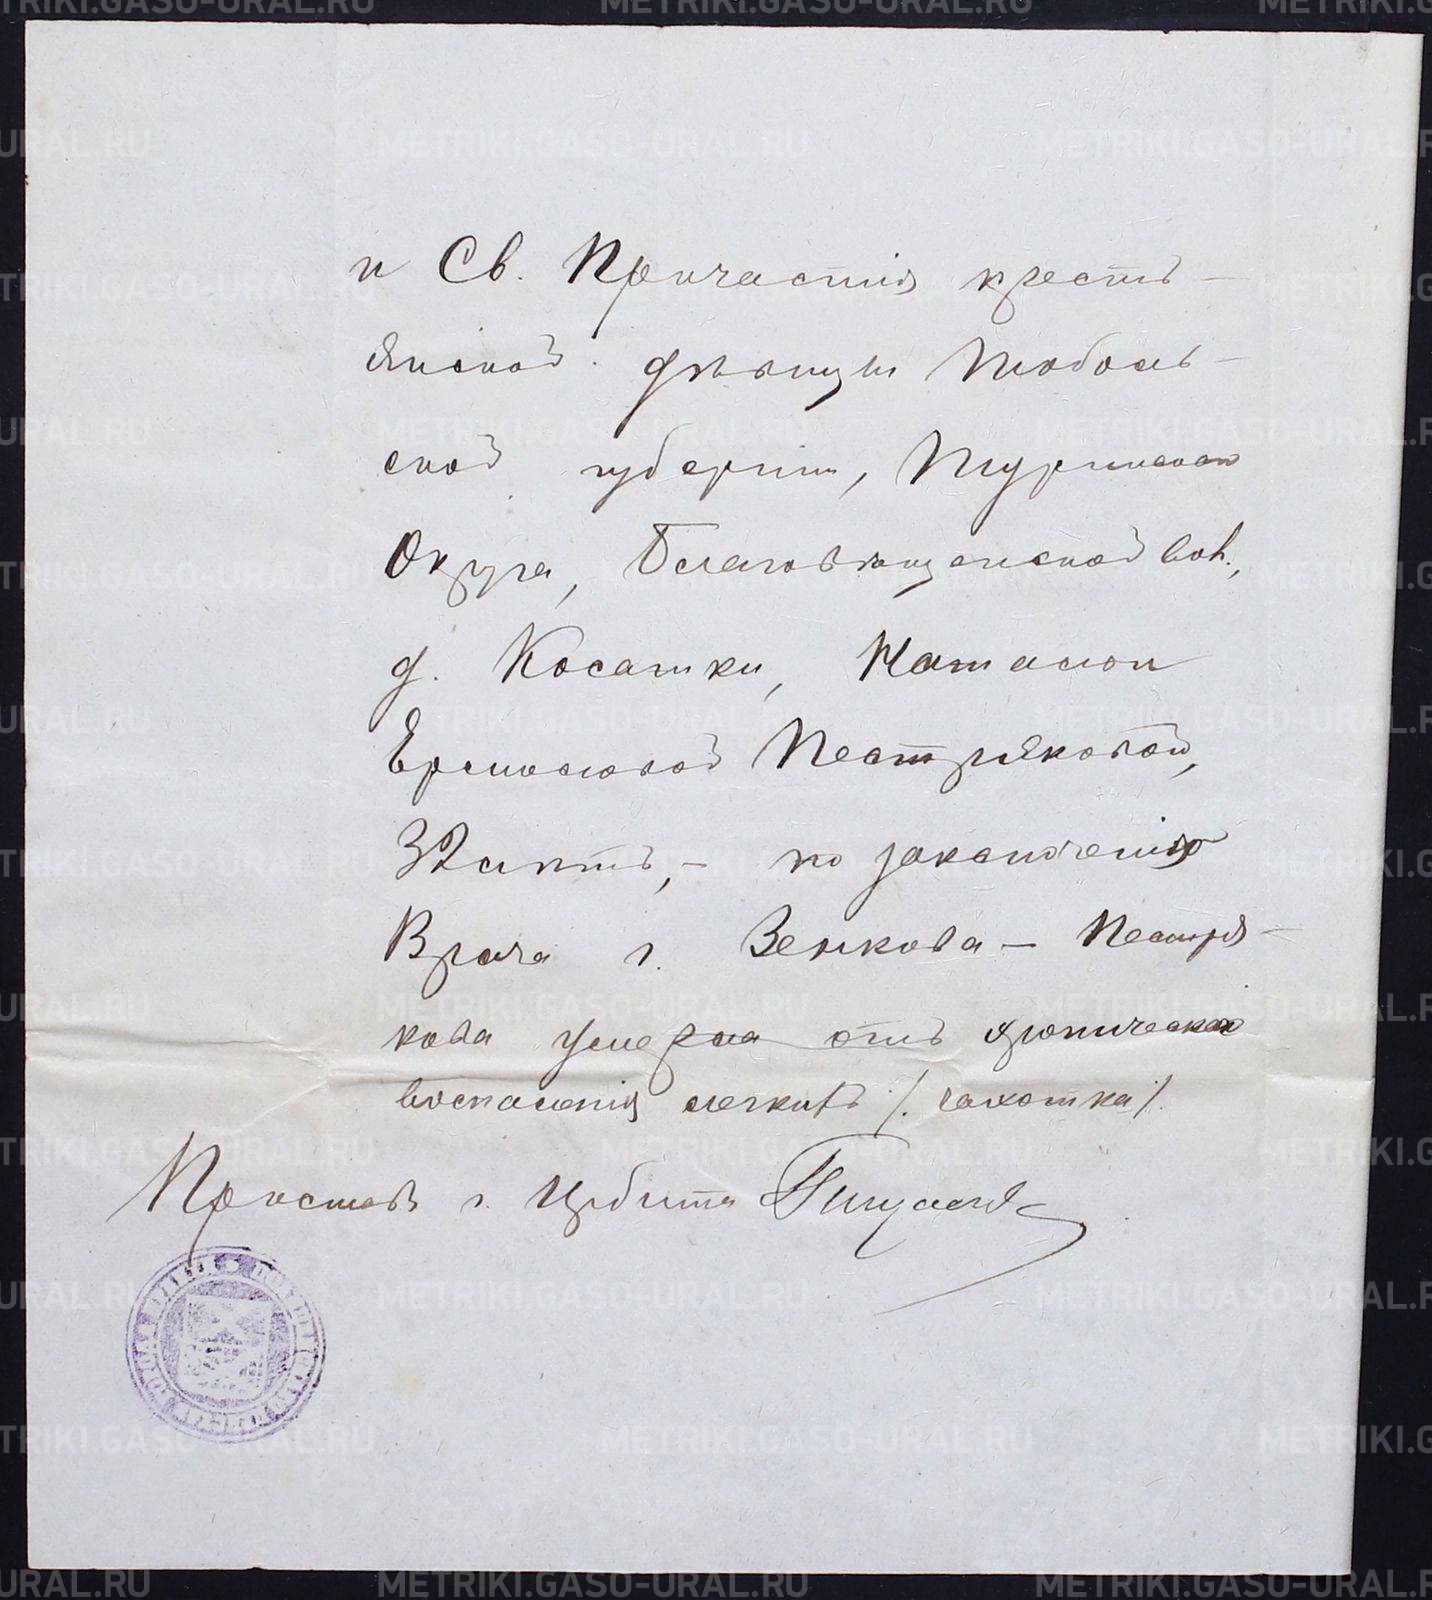 и Св. Причастія кресть-
янской дѣвицы Тоболь-
ской губерніи, Туринскаго
Округа, Благовѣщенской вол.,
д. Косатки, Наталіи
Ермиловой Пестряковой,
32 лѣтъ, - по заключенію
Врача г. Зенкова - Пестря-
кова умерла отъ хроническаго
воспаленія легкихъ /. чахотка ./
Приставъ г. Ирбита
METRIKI.GASO-URAL.RU